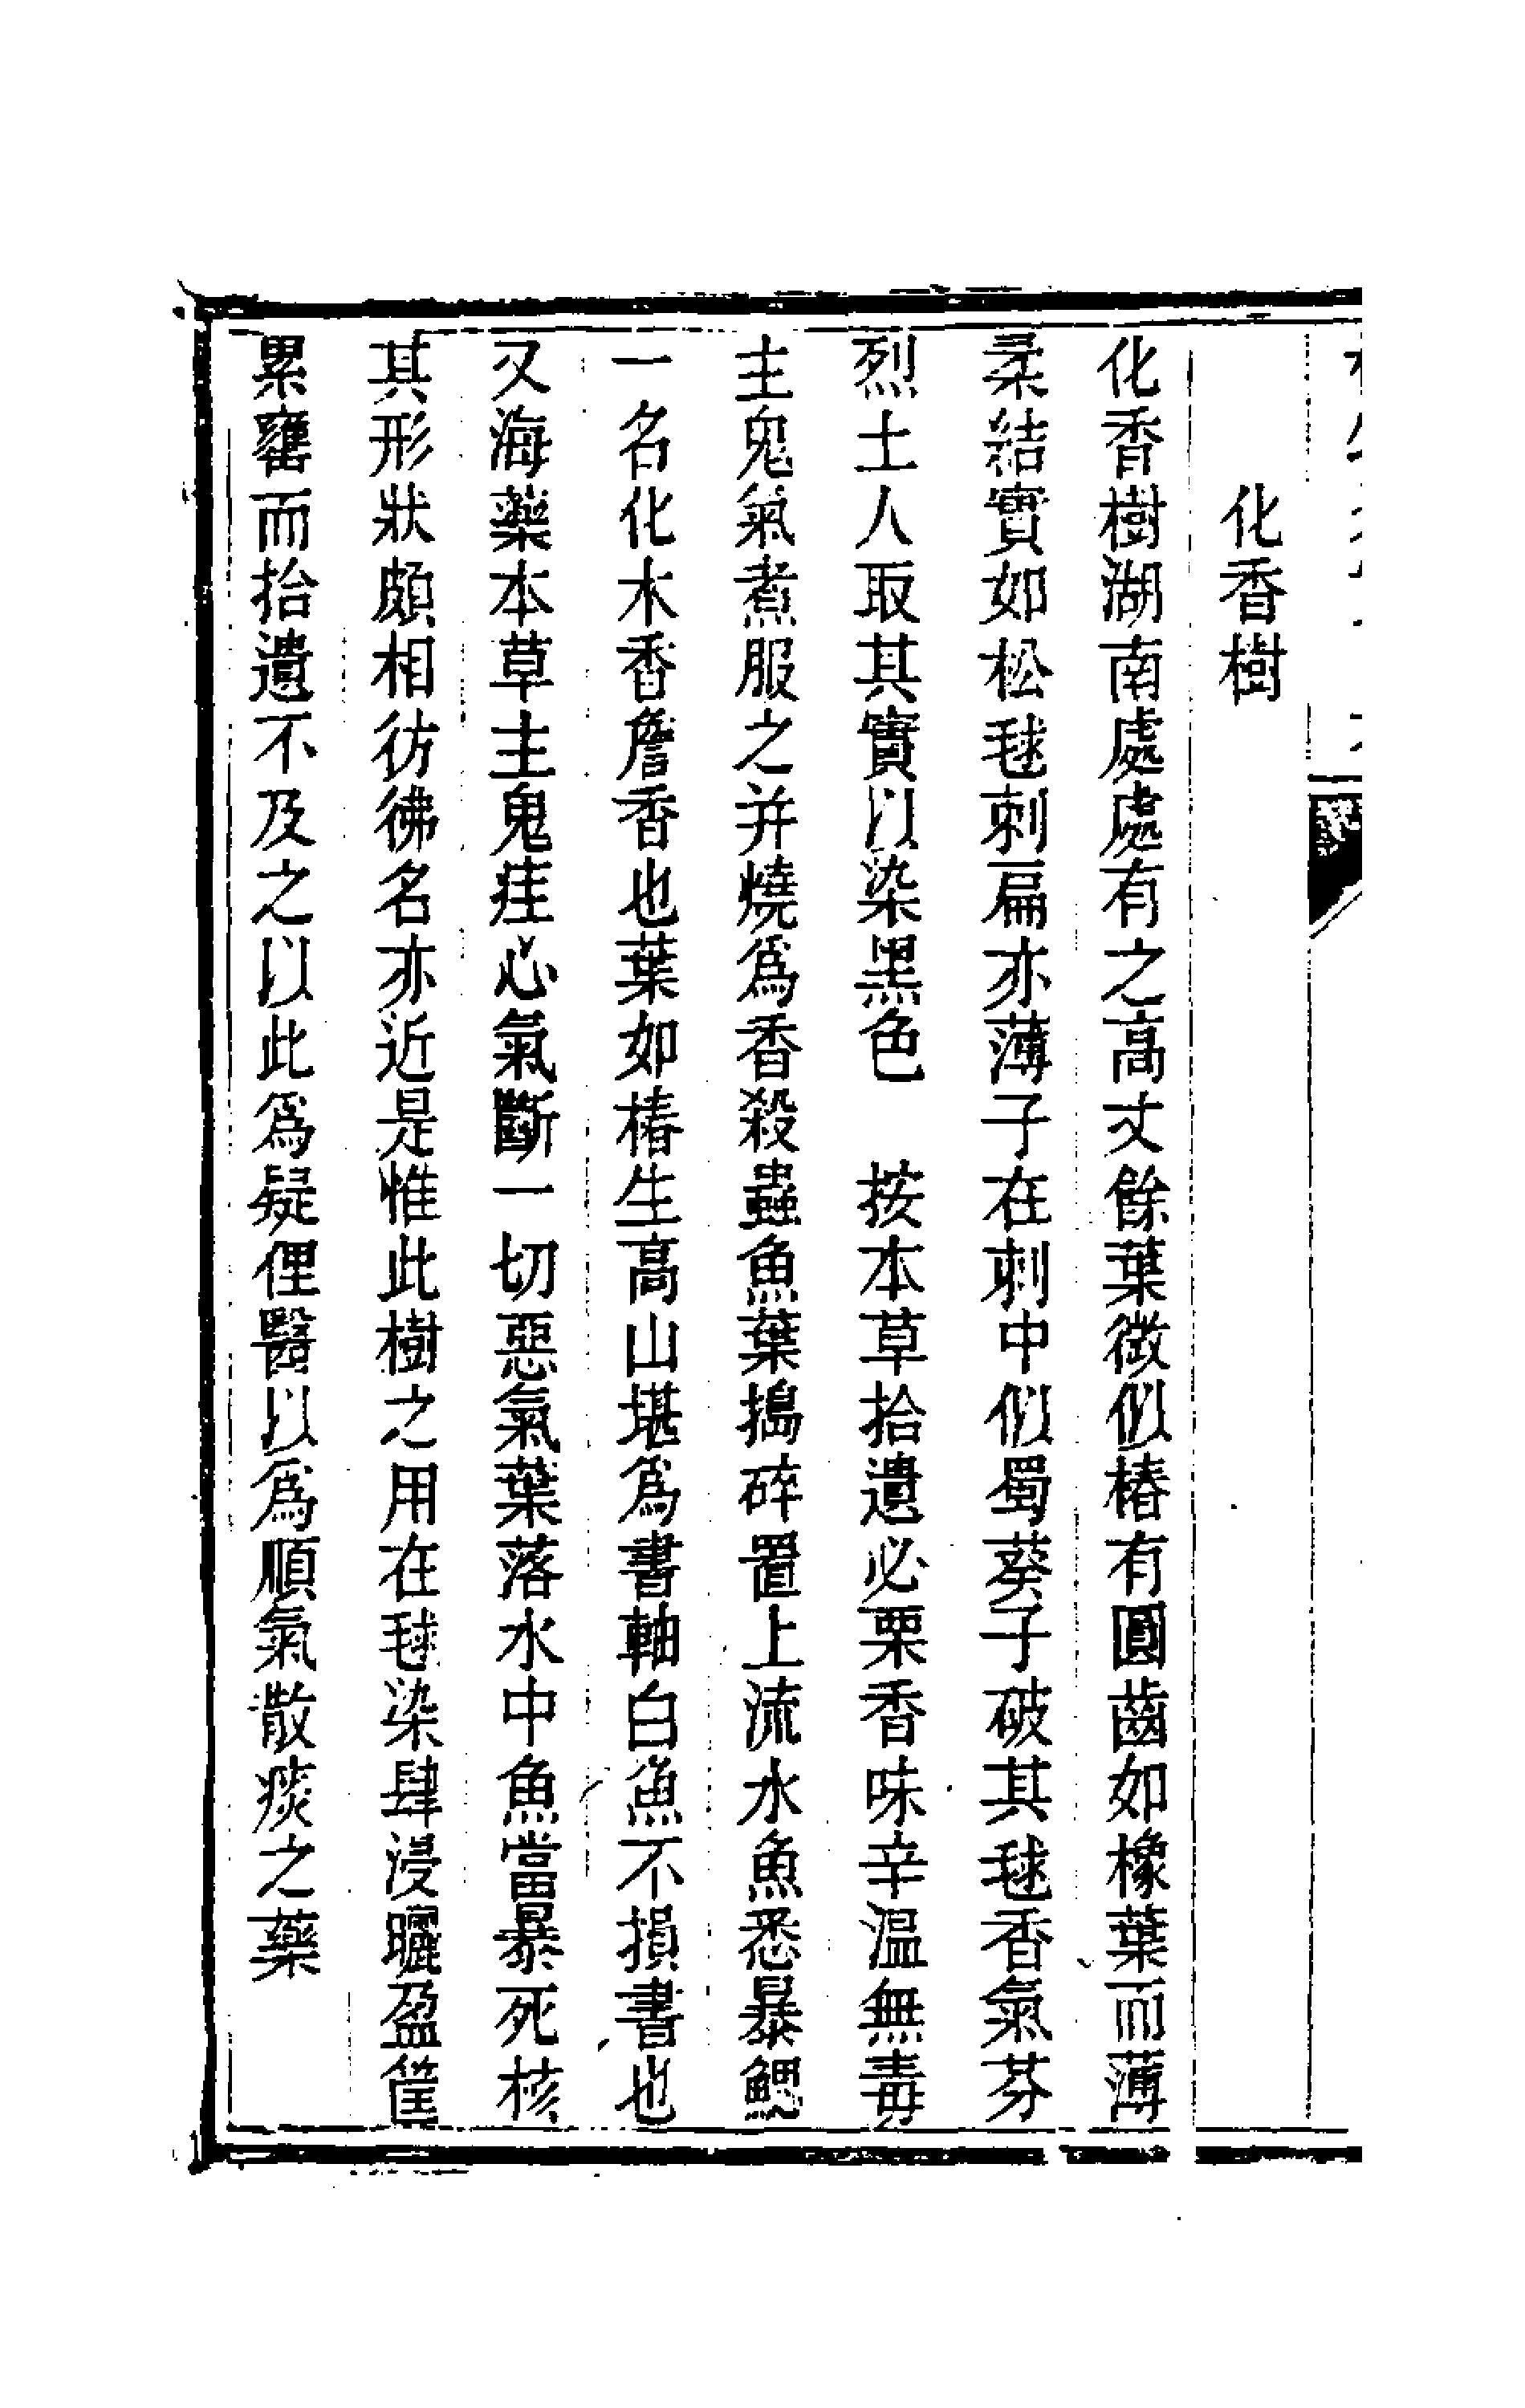 化香樹
化香樹湖南處處有之高丈餘葉微似椿有圓齒如橡葉而薄
柔結實如松毬刺扁亦薄子在刺中似蜀葵子破其毬香氣芬
烈土人取其實以染黑色　按本草拾遺必栗香味辛温無毒
主鬼氣煮服之并燒爲香殺蟲魚葉搗碎置上流水魚悉暴鰓
一名化木香詹香也葉如椿生高山堪爲書軸白魚不損書也
又海藥本草主鬼疰心氣斷一切惡氣葉落水中魚當暴死核
其形狀頗相彷彿名亦近是惟此樹之用在毬染肆浸曬盈筐
累罋而拾遺不及之以此爲疑俚醫以爲順氣散痰之藥